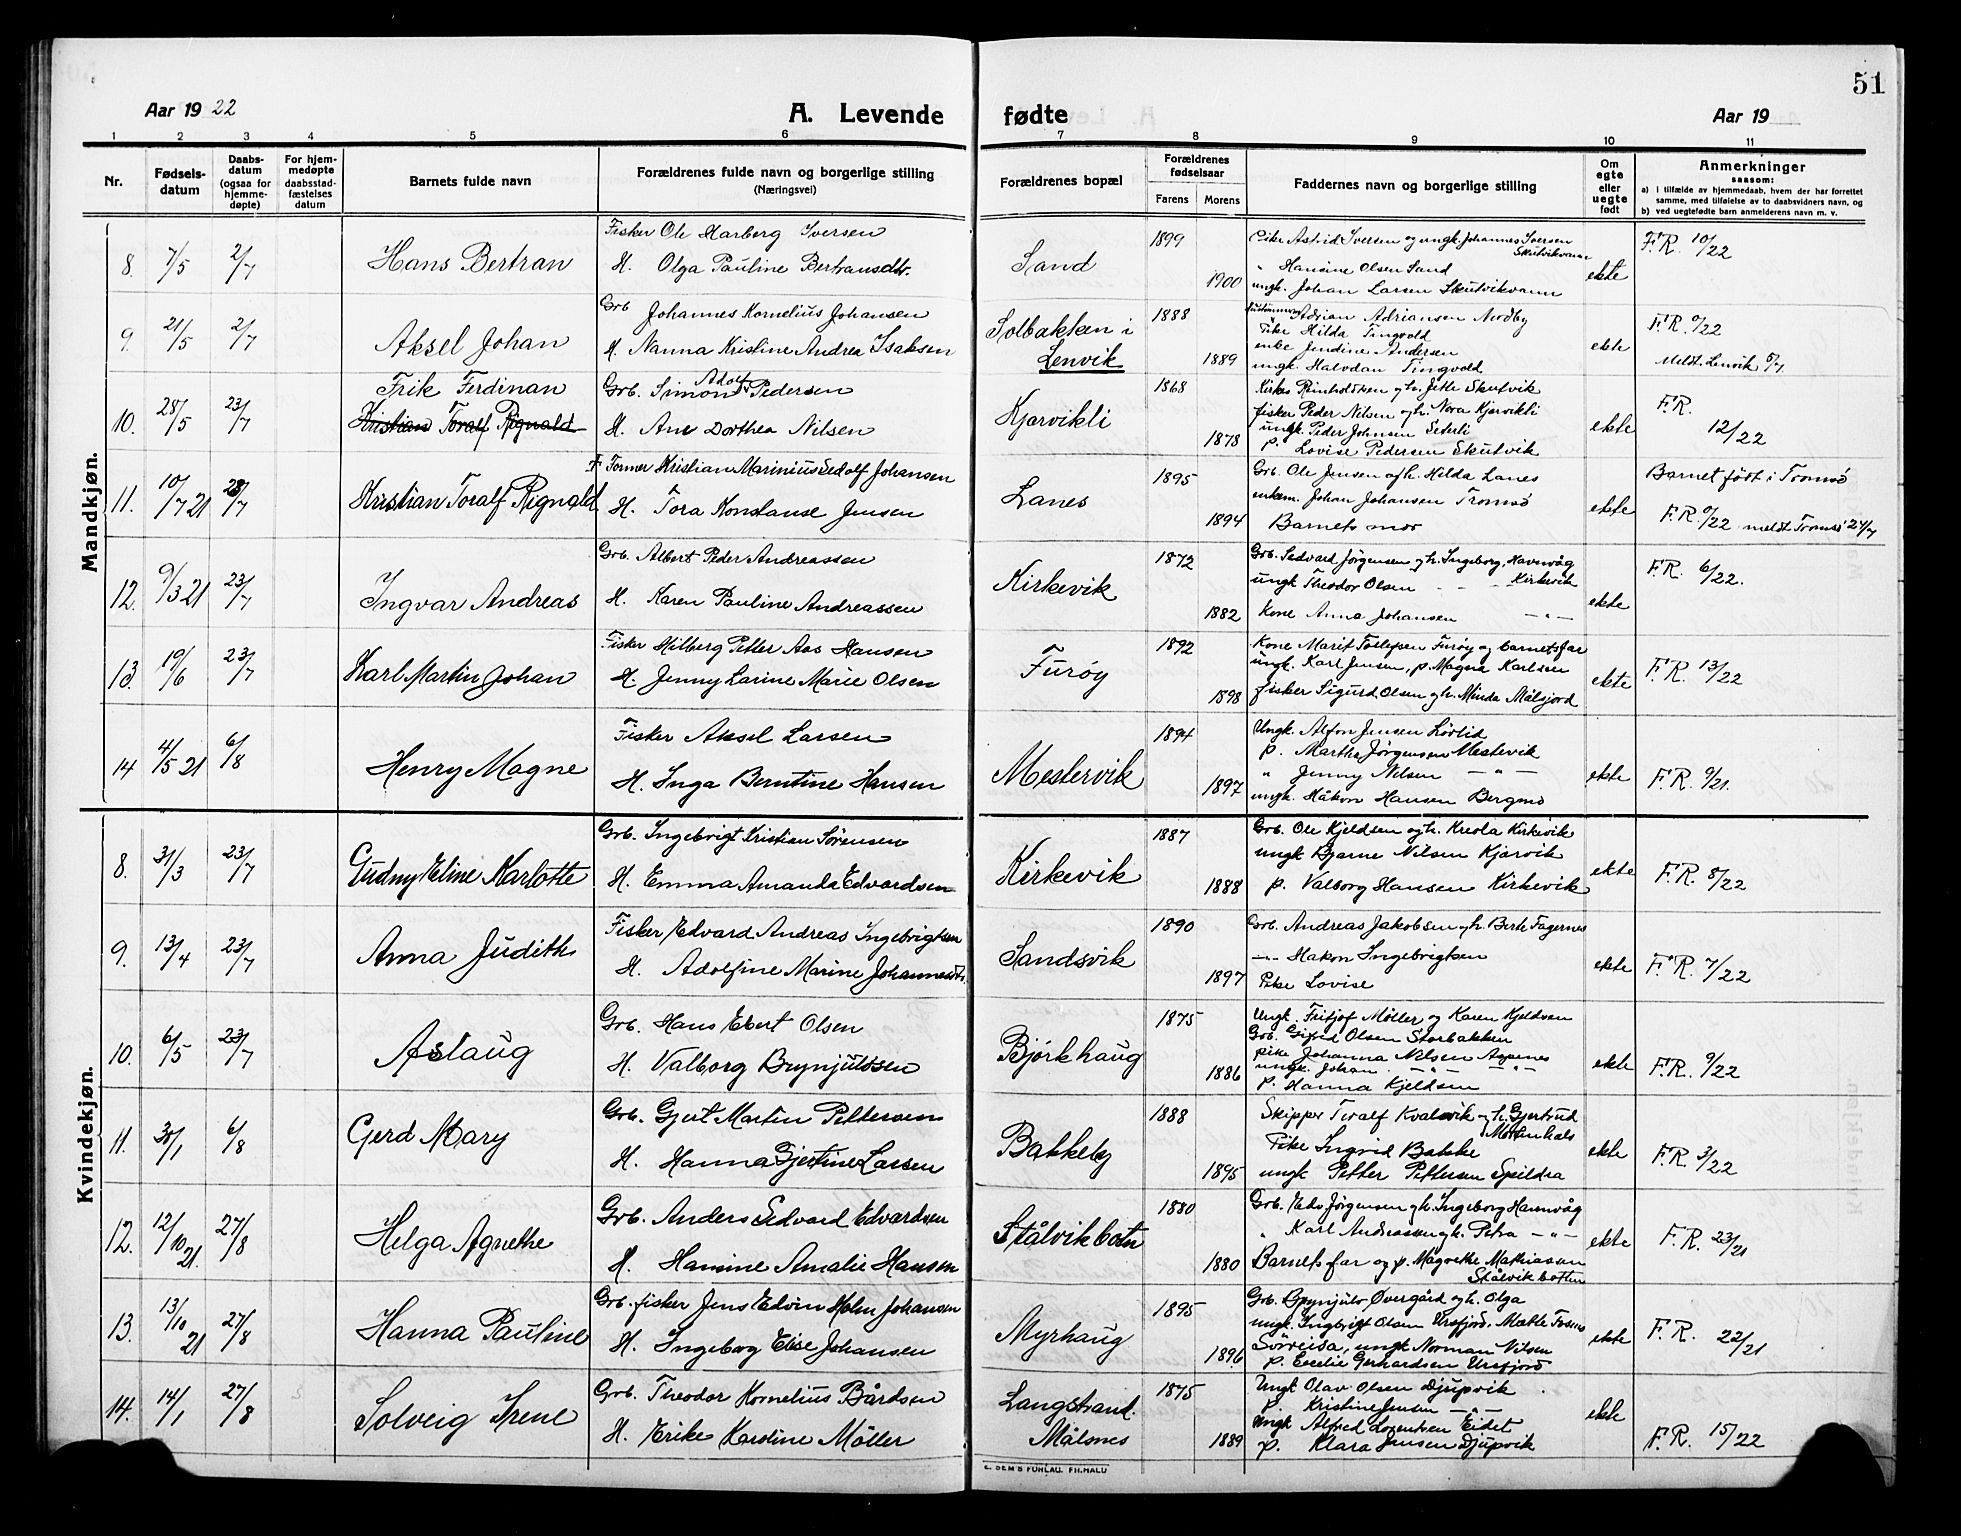 51
Aar 19 22
A. Levende fødte
Aar 19
1 2 3 4 5 6 7 8 9 10 11
Nr.
Fødsels-
datum
Daabs-
datum
(ogsaa for
hjemme-
døpte)
For hjem-
medøpte
daabsstad-
fæstelses
datum
Barnets fulde navn
Forældrenes fulde navn og borgerlige stilling
(Næringsvei)
Forældrenes bopæl
Forældrenes
fødselsaar
Farens Morens
Faddernes navn og borgerlige stilling
Om
egte
eller
uegte
født
Anmerkninger
saasom:
a) i tilfælde av hjemmedaab, hvem der har forrettet
samme, med tilføielse av to daabsvidners navn, og
b) ved uegtefødte barn anmelderens navn m. v.
Mandkjøn.
8. 7/5 2/7 Hans Bertran
Fisker Ole Marberg Iversen
H. Olga Pauline Bertransdtr.
Sand 1899 1900
Pike Astrid Iversen og ungk. Johannes Iversen
Skutvikvann
" Hansine Olsen Sand
ungk. Johan Larsen Skutvikvann
ekte F.R. 10/22
9. 21/5 2/7 Aksel Johan
Grb Johannes Kornelius Johansen
H. Nanna Kristine Andrea Isaksen
Solbakken i
Lenvik
1888 1889
Adrian Adriansen Nordby
Pike Hilda Tingvold
enke Jendine Andersen
ungk. Halvdan Tingvold
ekte F.R. 9/22
Meldt. Lenvik 5/7
10. 28/5 23/7 Frik Ferdinan
Kristian Toralf Rignald
Grb. Simon Adolf Pedersen
H. Ane Dorthea Nilsen
Kjørvikli 1868 1878
Kirkes Reinholdtsen og h. Jette Skutvik
fisker Peder Nilsen og h. Nora Kjørvikli
ungk. Peder Johnsen Seterli
p. Lovise Pedersen Skutvik
ekte F.R.
12/22
11. 10/7 21 23/7 Kristian Toralf Rignald
F Former Kristian Marinius Sedolf Johansen
H. Tora Konstanse Jensen
Lanes 1895 1894
Grb. Ole Jensen og h. Hilda Lanes
enkem. Johan Johansen Tromsö
Barnets mor
ekte
Barnet født i Tromsö
F.R. 9/22 meldt Tromsö 27/7
12. 9/3 21 23/7 Ingvar Andreas
Grb. Albert Peder Andreassen
H. Karen Pauline Andreassen
Kirkevik 1872 1882
Grb. Sedvard Jørgensen og h. Ingeborg, Havnvåg
ungk Theodor Olsen Kirkevik
Kone Anna Johansen — " —
ekte F.R. 6/22.
13. 19/6 23/7 Karl Martin Johan
Fisker Hilberg Petter Aas Hansen
H. Jenny Larine Marie Olsen
Furøy 1892 1898
Kone Marit Tollefsen Furøy og barnets far
ungk. Karl Jensen, p. Magna Karlsen
fisker Sigurd Olsen og h. Minda Målsjord
ekte F.R. 13/22
14 4/5 21 6/8 Henry Magne
Fisker Aksel Larsen
H. Inga Berntine Hansen
Mestervik 1894 1897
Ungk. Alfon Jensen Løvlid
p. Martha Jörgensen Mestervik
" Jenny Nilsen — " —
ungk. Håkon Hansen Bergmo
ekte F.R. 9/21.
Kvindekjøn.
8. 31/3 23/7 Gudny Eline Karlotte
Grb. Ingebrigt Kristian Sørensen
H. Emma Amanda Edvardsen
Kirkevik 1887 1888
Grb. Ole Kjeldsen og h. Kreola Kirkevik
ungk Bjarne Nilsen Kjørvik
p. Valborg Hansen Kirkevik
ekte F.R. 8/22
9. 13/4 23/7 Anna Judith
Fisker Edvard Andreas Ingebrigtsen
H. Adolfine Marine Johannesdtr.
Sandsvik 1890 1897
Grb. Andreas Jakobsen og h. Berte Fagernes
—"— Hakon Ingebrigtsen
Pike Lovise
ekte F.R. 7/22
10. 6/5 23/7 Aslaug
Grb. Hans Ebert Olsen
H. Valborg Brynjulfsen
Bjørkhaug 1875 1886
Ungk. Fritjof Møller og Karen Kjeldsen
Grb. Sigfrid Olsen Storbakken
pike Johanna Nilsen Aspenes
ungk. Johan — " — — " —
p. Hanna Kjeldsen
ekte F.R. 9/22
11. 30/1 6/8 Gerd Mary
Grb. Gjert Martin Pettersen
H. Hanna Gjertine Larsen
Bakkeby 1888 1895
Skipper Toralf Kvalsvik og h. Gjertrud
Mortenhals
Pike Ingrid Bakke
ungk Petter Pettersen Spildra
ekte F.R. 3/22
12. 12/10 21. 27/8 Helga Agnethe
Grb. Anders Sedvard Edvardsen
H. Hansine Amalie Hansen
Stålvikbotn 1880 1880
Grb. Edv Jørgensen og h. Ingeborg Havnvåg
" Karl Andreassen og h. Petra — " —
Barnets far og p. Magrethe Mathiassen
Stålvikbotten
ekte F.R. 23/21
13. 13/10 21 27/8 Hanna Pauline
Grb. fisker Jens Edvin Holm Johansen
H. Ingeborg Elise Johansen
Myrhaug 1895 1896
Grb. Brynjulv Øvergård og h. Olga
ungk. Ingbrigt Olsen Ursfjord, Mætte
Sörreisa, ungk Norman Nilsen
p. Ecelie Gerhardsen Ursfjord
ekte F.R. 22/21
14. 14/1 27/8 Solveig Irene
Grb. Theodor Kornelius Bårdsen
H. Erike Karoline Möller
Langstrand.
Målsnes
1875 1889
Ungk Olav Olsen Djupvik
p. Kristine Jensen — " —
Ungk Alfred Lorentsen Eidet
p. Klara Jensen Djupvik
ekte F.R. 15/22
E. SEM'S FORLAG. FR.HALD